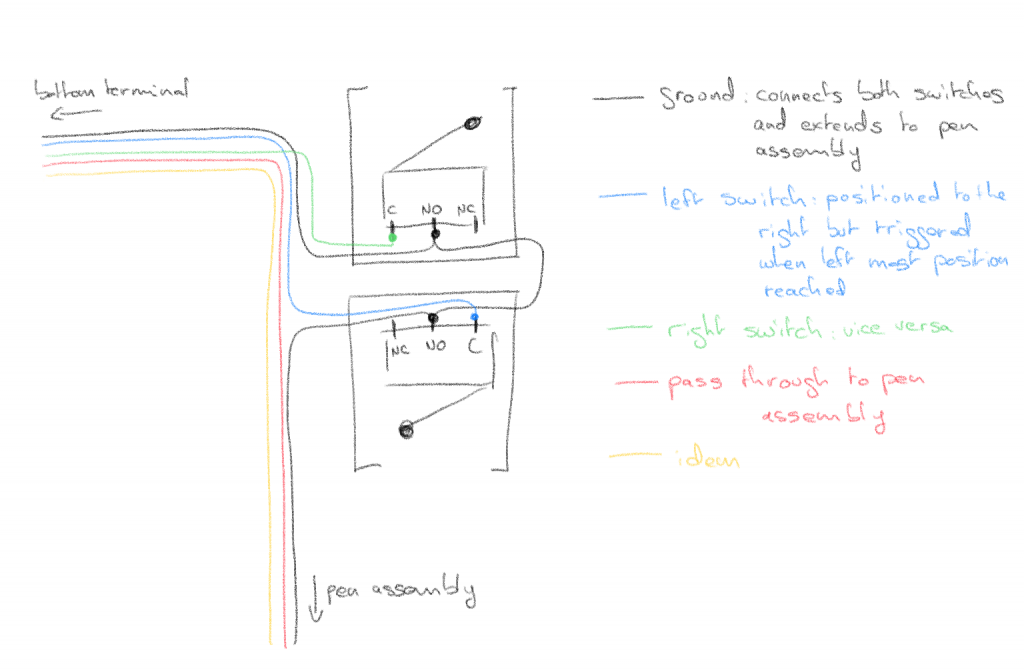 bottom terminal
C NO NC
NC NO C
pen assembly
ground: connects both switches
and extends to pen
assembly
left switch: positioned to the
right but triggered
when left most position
reached
right switch: vice versa
pass through to pen
assembly
idem